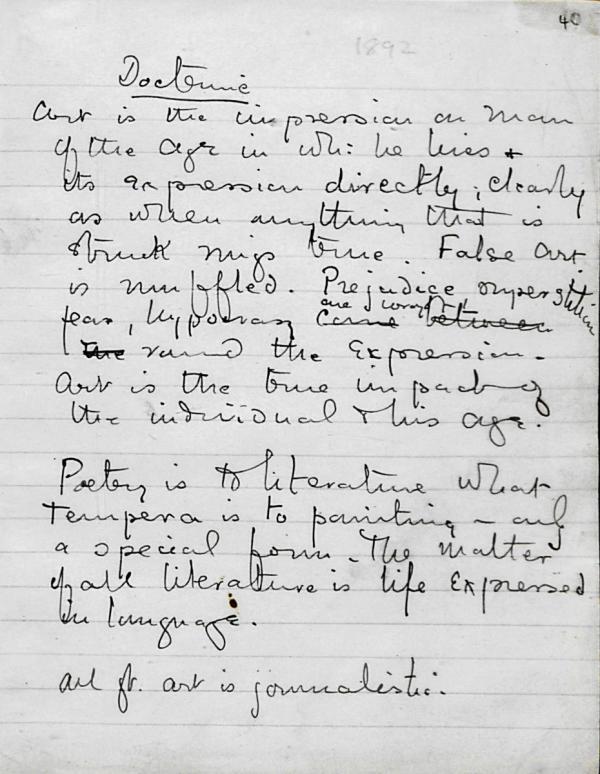 40
1892
Doctrine
Art is the impression on man
of the age in wh: he lives &
its expression directly; clearly
as when anything that is
struck rings true. False art
is muffled. Prejudice superstition
are wrapt
fear, hypocrasy came between
the round the expression.
Art is the true impact of
the individual & his age.
Poetry is to literature what
tempera is to painting – only
a special form. The matter
of all literature is life expressed
in language.
All gt. art is journalistic.